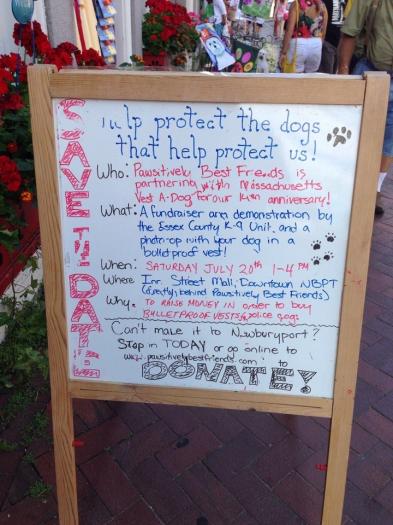 SAVE THE DATE
Help protect the dogs
that help protect us!
Who: Pawsitively Best Friends is
partnering with Massachusetts
Vest A-Dog for our anniversary!
What: A fundraiser and demonstration by
the Essex County K-9 Unit. and a
photo-op with your dog in a
bulletproof vest!
When: SATURDAY JULY 20th 1-4 PM
Where Inn Street Mall, Downtown NBPT
(directly behind Pawsitively Best Friends)
Why: TO RAISE MONEY in order to buy
BULLETPROOF VESTS police dogs
Can't make it to Newburyport?
Stop in TODAY or go online to
www.pawsitivelybestfriends.com to
DONATE!